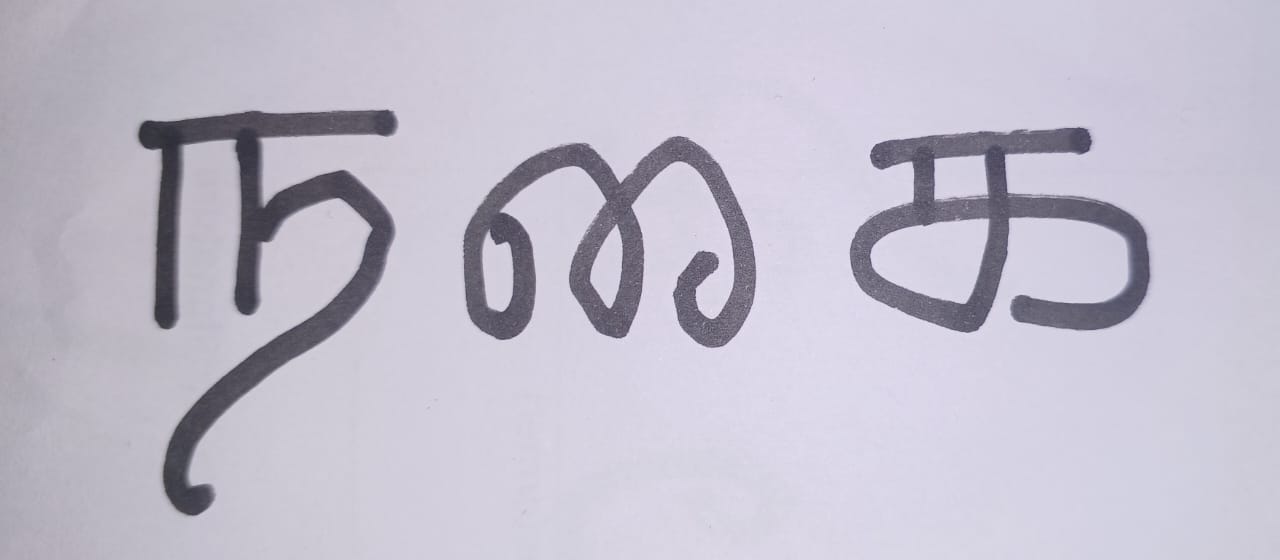 நகை